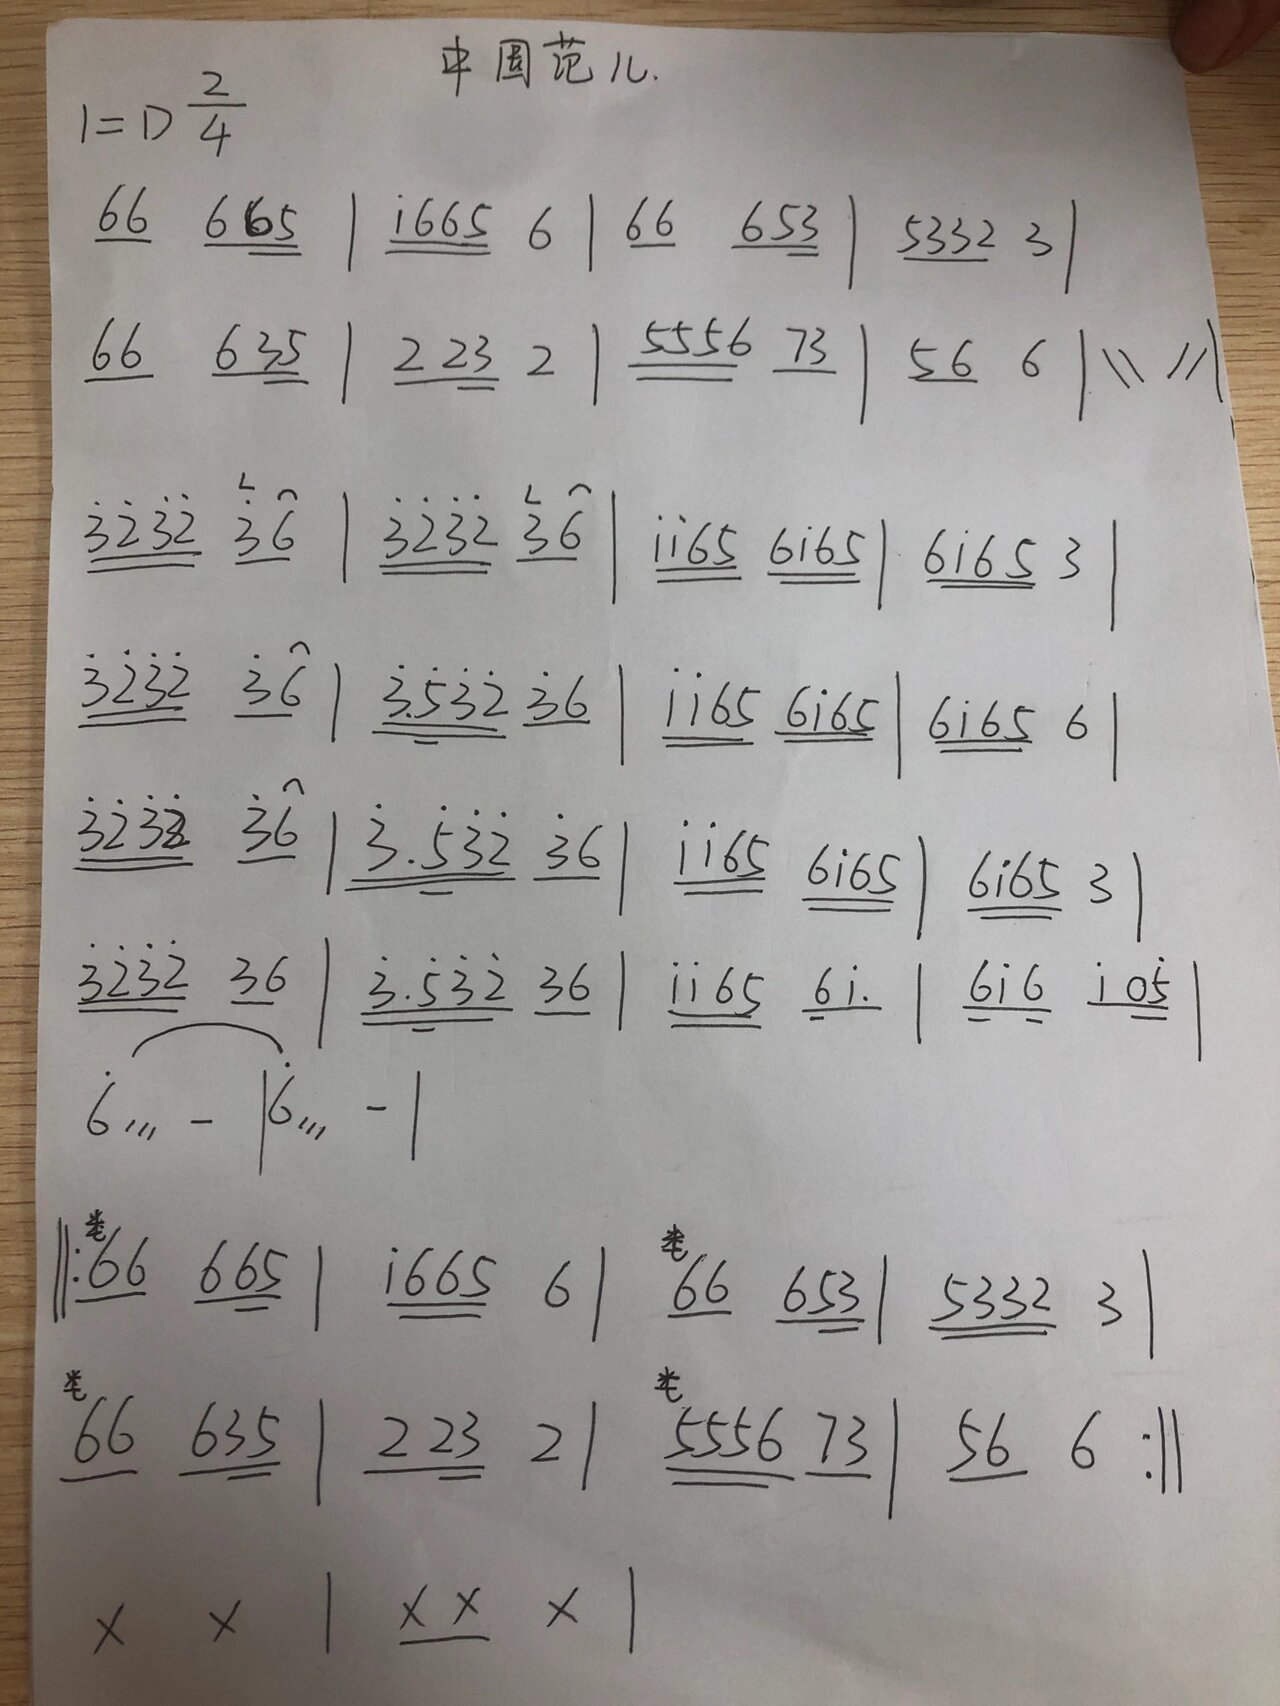 中国范儿.
1=D 2/4
66 665 | i665 6 | 66 653 | 5332 3 |
66 635 | 2 23 2 | 5556 73 | 56 6 | \\ // |
3̇2̇3̇2̇ 3̇6 | 3̇2̇3̇2̇ 3̇6 | ii65 6i65 | 6i65 3 |
3̇2̇3̇2̇ 3̇6 | 3̇.5̇3̇2̇ 3̇6 | ii65 6i65 | 6i65 6 |
3̇2̇3̇2̇ 3̇6 | 3̇.5̇3̇2̇ 3̇6 | ii65 6i65 | 6i65 3 |
3̇2̇3̇2̇ 36 | 3̇.5̇3̇2̇ 36 | ii65 6i. | 6i6 i05̇ |
6̇/// - | 6̇/// - |
||: 66 665 | i665 6 | 66 653 | 5332 3 |
66 635 | 2 23 2 | 5556 73 | 56 6 :||
X X | X X X |